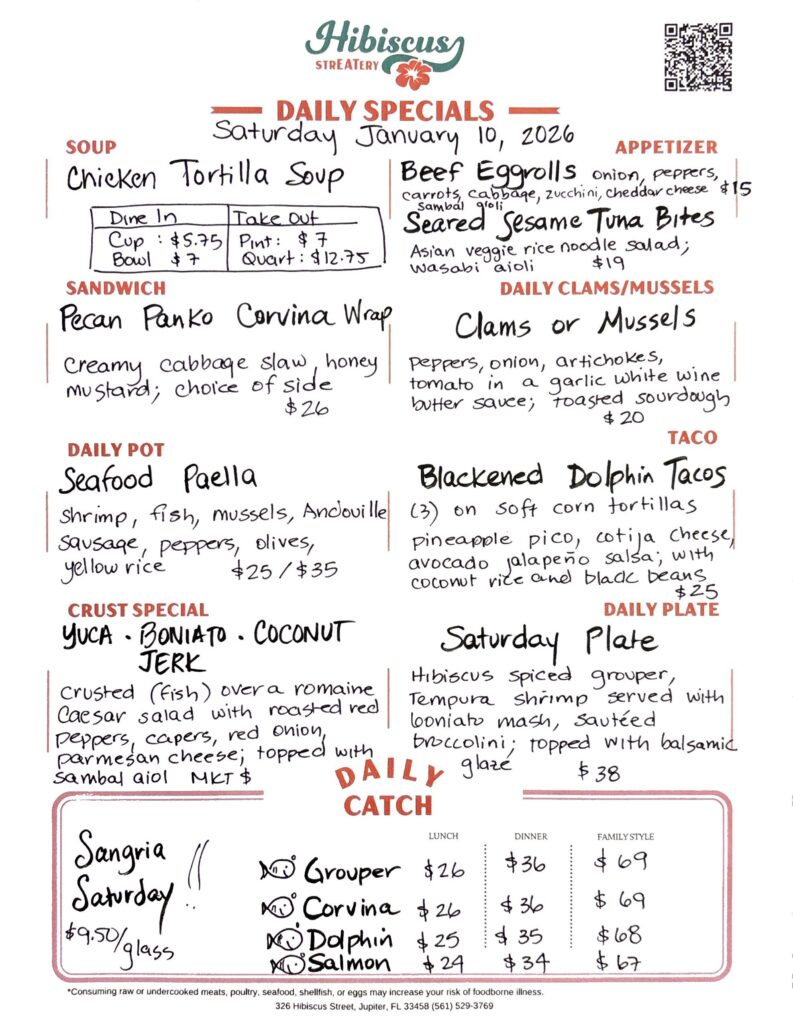 Hibiscus
STREATERY
DAILY SPECIALS
Saturday January 10, 2026
SOUP
Chicken Tortilla Soup
Dine In Take Out
Cup : $5.75 Pint: $7
Bowl $7 Quart: $12.75
APPETIZER
Beef Eggrolls onion, peppers,
carrots, cabbage, zucchini, cheddar cheese $15
sambal aioli
Seared Sesame Tuna Bites
Asian veggie rice noodle salad;
wasabi aioli $19
SANDWICH
Pecan Panko Corvina Wrap
Creamy cabbage slaw, honey
mustard; choice of side
$26
DAILY CLAMS/MUSSELS
Clams or Mussels
peppers, onion, artichokes,
tomato in a garlic white wine
butter sauce; toasted sourdough
$20
DAILY POT
Seafood Paella
shrimp, fish, mussels, Andouille
sausage, peppers, olives,
yellow rice $25/$35
TACO
Blackened Dolphin Tacos
(3) on soft corn tortillas
pineapple pico, cotija cheese,
avocado jalapeño salsa; with
coconut rice and black beans
$25
CRUST SPECIAL
YUCA · BONIATO · COCONUT
JERK
crusted (fish) over a romaine
Caesar salad with roasted red
peppers, capers, red onion,
parmesan cheese; topped with
sambal aiol MKT $
DAILY PLATE
Saturday Plate
Hibiscus spiced grouper,
Tempura shrimp served with
boniato mash, sautéed
broccolini; topped with balsamic
glaze $38
DAILY
CATCH
Sangria
Saturday!!
$9.50/glass
LUNCH DINNER FAMILY STYLE
Grouper $26 $36 $69
Corvina $26 $36 $69
Dolphin $25 $35 $68
Salmon $24 $34 $67
*Consuming raw or undercooked meats, poultry, seafood, shellfish, or eggs may increase your risk of foodborne illness.
326 Hibiscus Street, Jupiter, FL 33458 (561) 529-3769